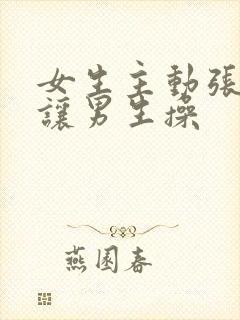 女生主動張
讓男生操
燕園春